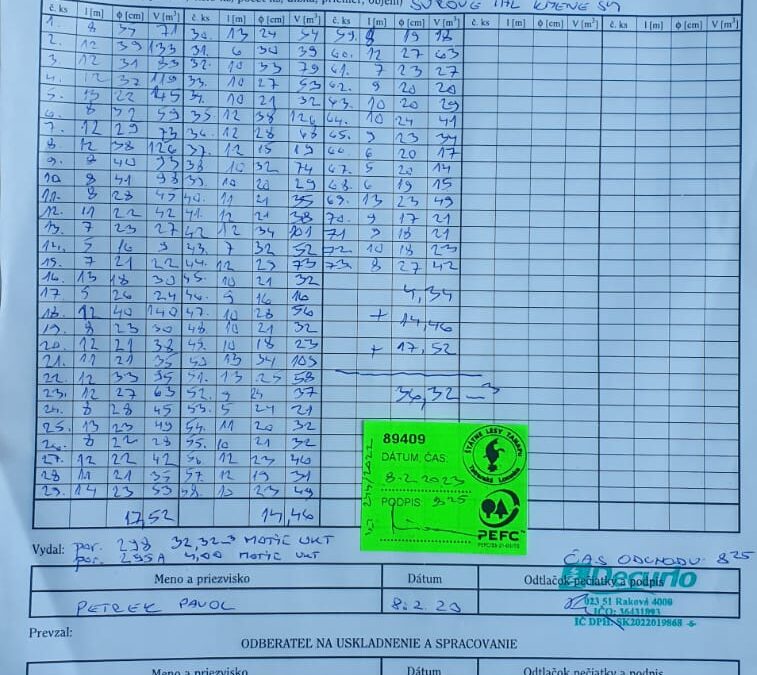 č. ks l [m] ϕ [cm] V [m³] č. ks l [m] ϕ [cm] V [m³] č. ks l [m] ϕ [cm] V [m³] č. ks l [m] ϕ [cm] V [m³] č. ks l [m] ϕ [cm] V [m³]
1. 8 37 71 30. 13 24 54 59. 8 19 18
2. 12 39 133 31. 6 30 39 60. 12 27 63
3. 12 31 83 32. 10 33 79 61. 7 23 27
4. 12 37 119 33. 10 27 53 62. 9 20 20
5. 13 22 45 34. 10 21 32 63. 10 20 29
6. 8 32 59 35 12 38 126 64. 10 24 41
7. 12 29 73 36. 12 28 68 65. 9 23 34
8. 12 38 126 37. 12 15 19 66. 6 20 17
9. 8 40 93 38 10 32 74 67. 5 20 14
10. 8 41 98 39. 10 20 29 68. 6 19 15
11. 8 28 45 40. 11 21 35 69. 13 23 49
12. 11 22 42 41. 12 21 38 70. 9 17 21
13. 7 23 27 42 12 34 101 71 9 18 21
14. 5 16 9 43. 7 32 52 72 10 18 23
15. 7 21 22 44. 12 29 73 73 8 27 42
16. 13 18 30 45. 10 21 32
17 5 26 24 46. 9 16 16 4,34
18. 12 40 140 47. 10 28 56 + 14,46
19. 8 23 30 48. 10 21 32
20. 12 21 38 49. 10 18 23 + 17,52
21. 11 21 35 50 13 34 109
22. 12 33 95 51. 13 25 58
23. 12 27 63 52. 9 24 37 36,32 m³
24. 8 28 45 53. 5 24 21
25. 13 23 49 54. 11 20 32
26. 8 22 28 55. 10 21 32
27. 12 22 42 56. 12 23 46
28 11 21 35 57. 12 19 31
29. 14 23 59 58. 10 23 49
17,52 14,46
89409
DÁTUM, ČAS:
8.2.2023
PODPIS: 8 25
ŠTÁTNE LESY TANAPU
Tatranská Lomnica
PEFC
Vydal: por. 298 32,32 m³ MOTIČ UKT
por. 295A 4,00 MOTIČ UKT
ČAS ODCHODU: 8 25
Meno a priezvisko Dátum Odtlačok pečiatky a podpis
PETREK PAVOL 8.2.23
023 51 Raková 4000
IČO: 36431093
IČ DPH: SK2022019868 -6-
Prevzal:
ODBERATEĽ NA USKLADNENIE A SPRACOVANIE
Meno a priezvisko Dátum Odtlačok pečiatky a podpis